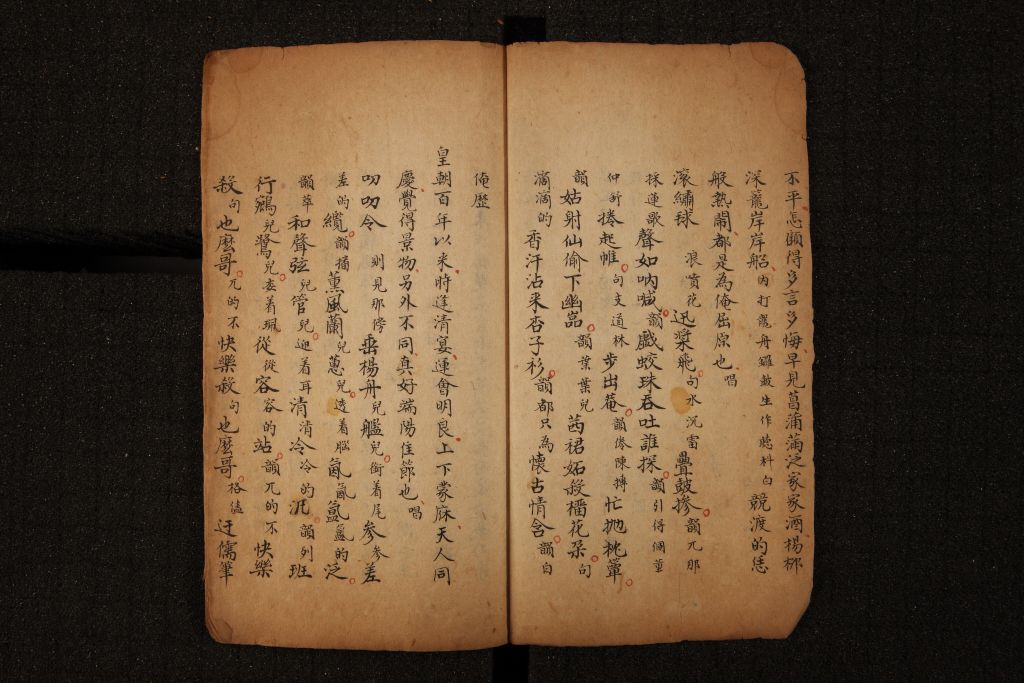 不平怎願得多言多悔早見菖蒲滿泛家家酒楊柳
深籠岸岸船內打龍舟鑼鼓生作聽科白競渡的恁
般熱鬧都是為俺屈原也唱
滾繡球浪噴花迅槳飛句水沉雷疊鼓摻韻兀那
採蓮歌聲如吶喊韻戲蛟珠吞吐誰探韻引得個董
仲舒捲起帷句支道林步出菴韻倐陳摶忙抛枕簟
韻姑射仙偷下幽嵓韻葉葉兒茜裙妬殺榴花朶句
滴滴的香汗沾來杏子衫韻都只為懷古情含韻白
俺歷
皇朝百年以來時逢清宴運會明良上下蒙庥天人同
慶覺得景物另外不同真好端陽佳節也唱
叨叨令則見那傍垂楊舟兒艦兒銜着尾參參差
差的纜韻擂薰風蘭兒蕙兒透着腦氤氤氳氳的泛
韻萃和聲弦兒管兒迎着耳清清冷冷的汎韻列班
行鵷兒鷺兒去着珮從從容容的站韻兀的不快樂
殺句也麼哥兀的不快樂殺句也麼哥格儘迂儒筆